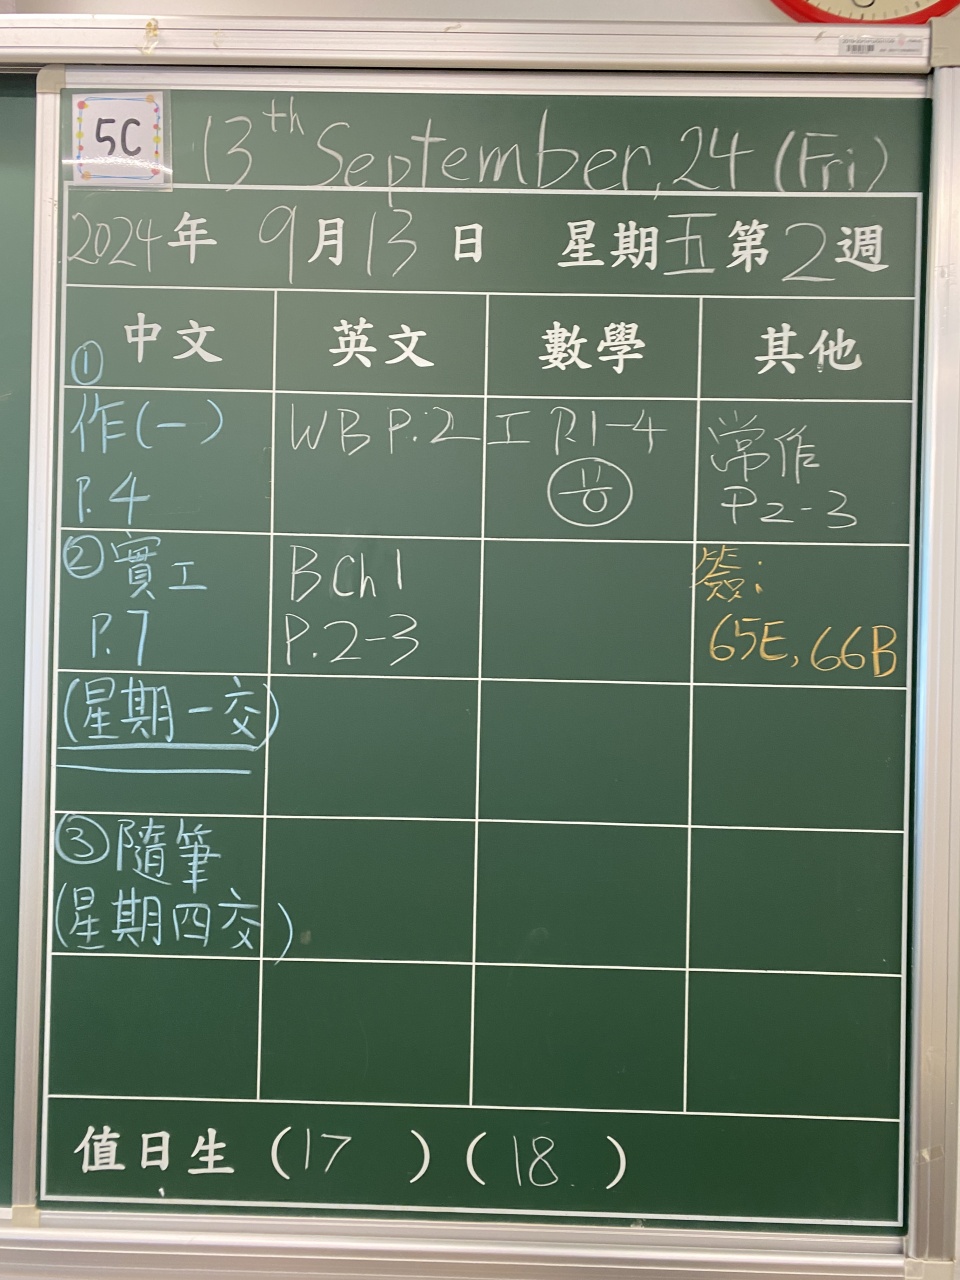 5C
13th September, 24 (Fri)
2024年 9月13日 星期五第2週
中文 英文 數學 其他
① 作(一)
P.4
② 實工
P.7
(星期一交)
③ 隨筆
(星期四交)
WB P.2
B Ch 1
P.2-3
工 P.1-4
常作
P2-3
簽:
65E, 66B
值日生 (17) (18)